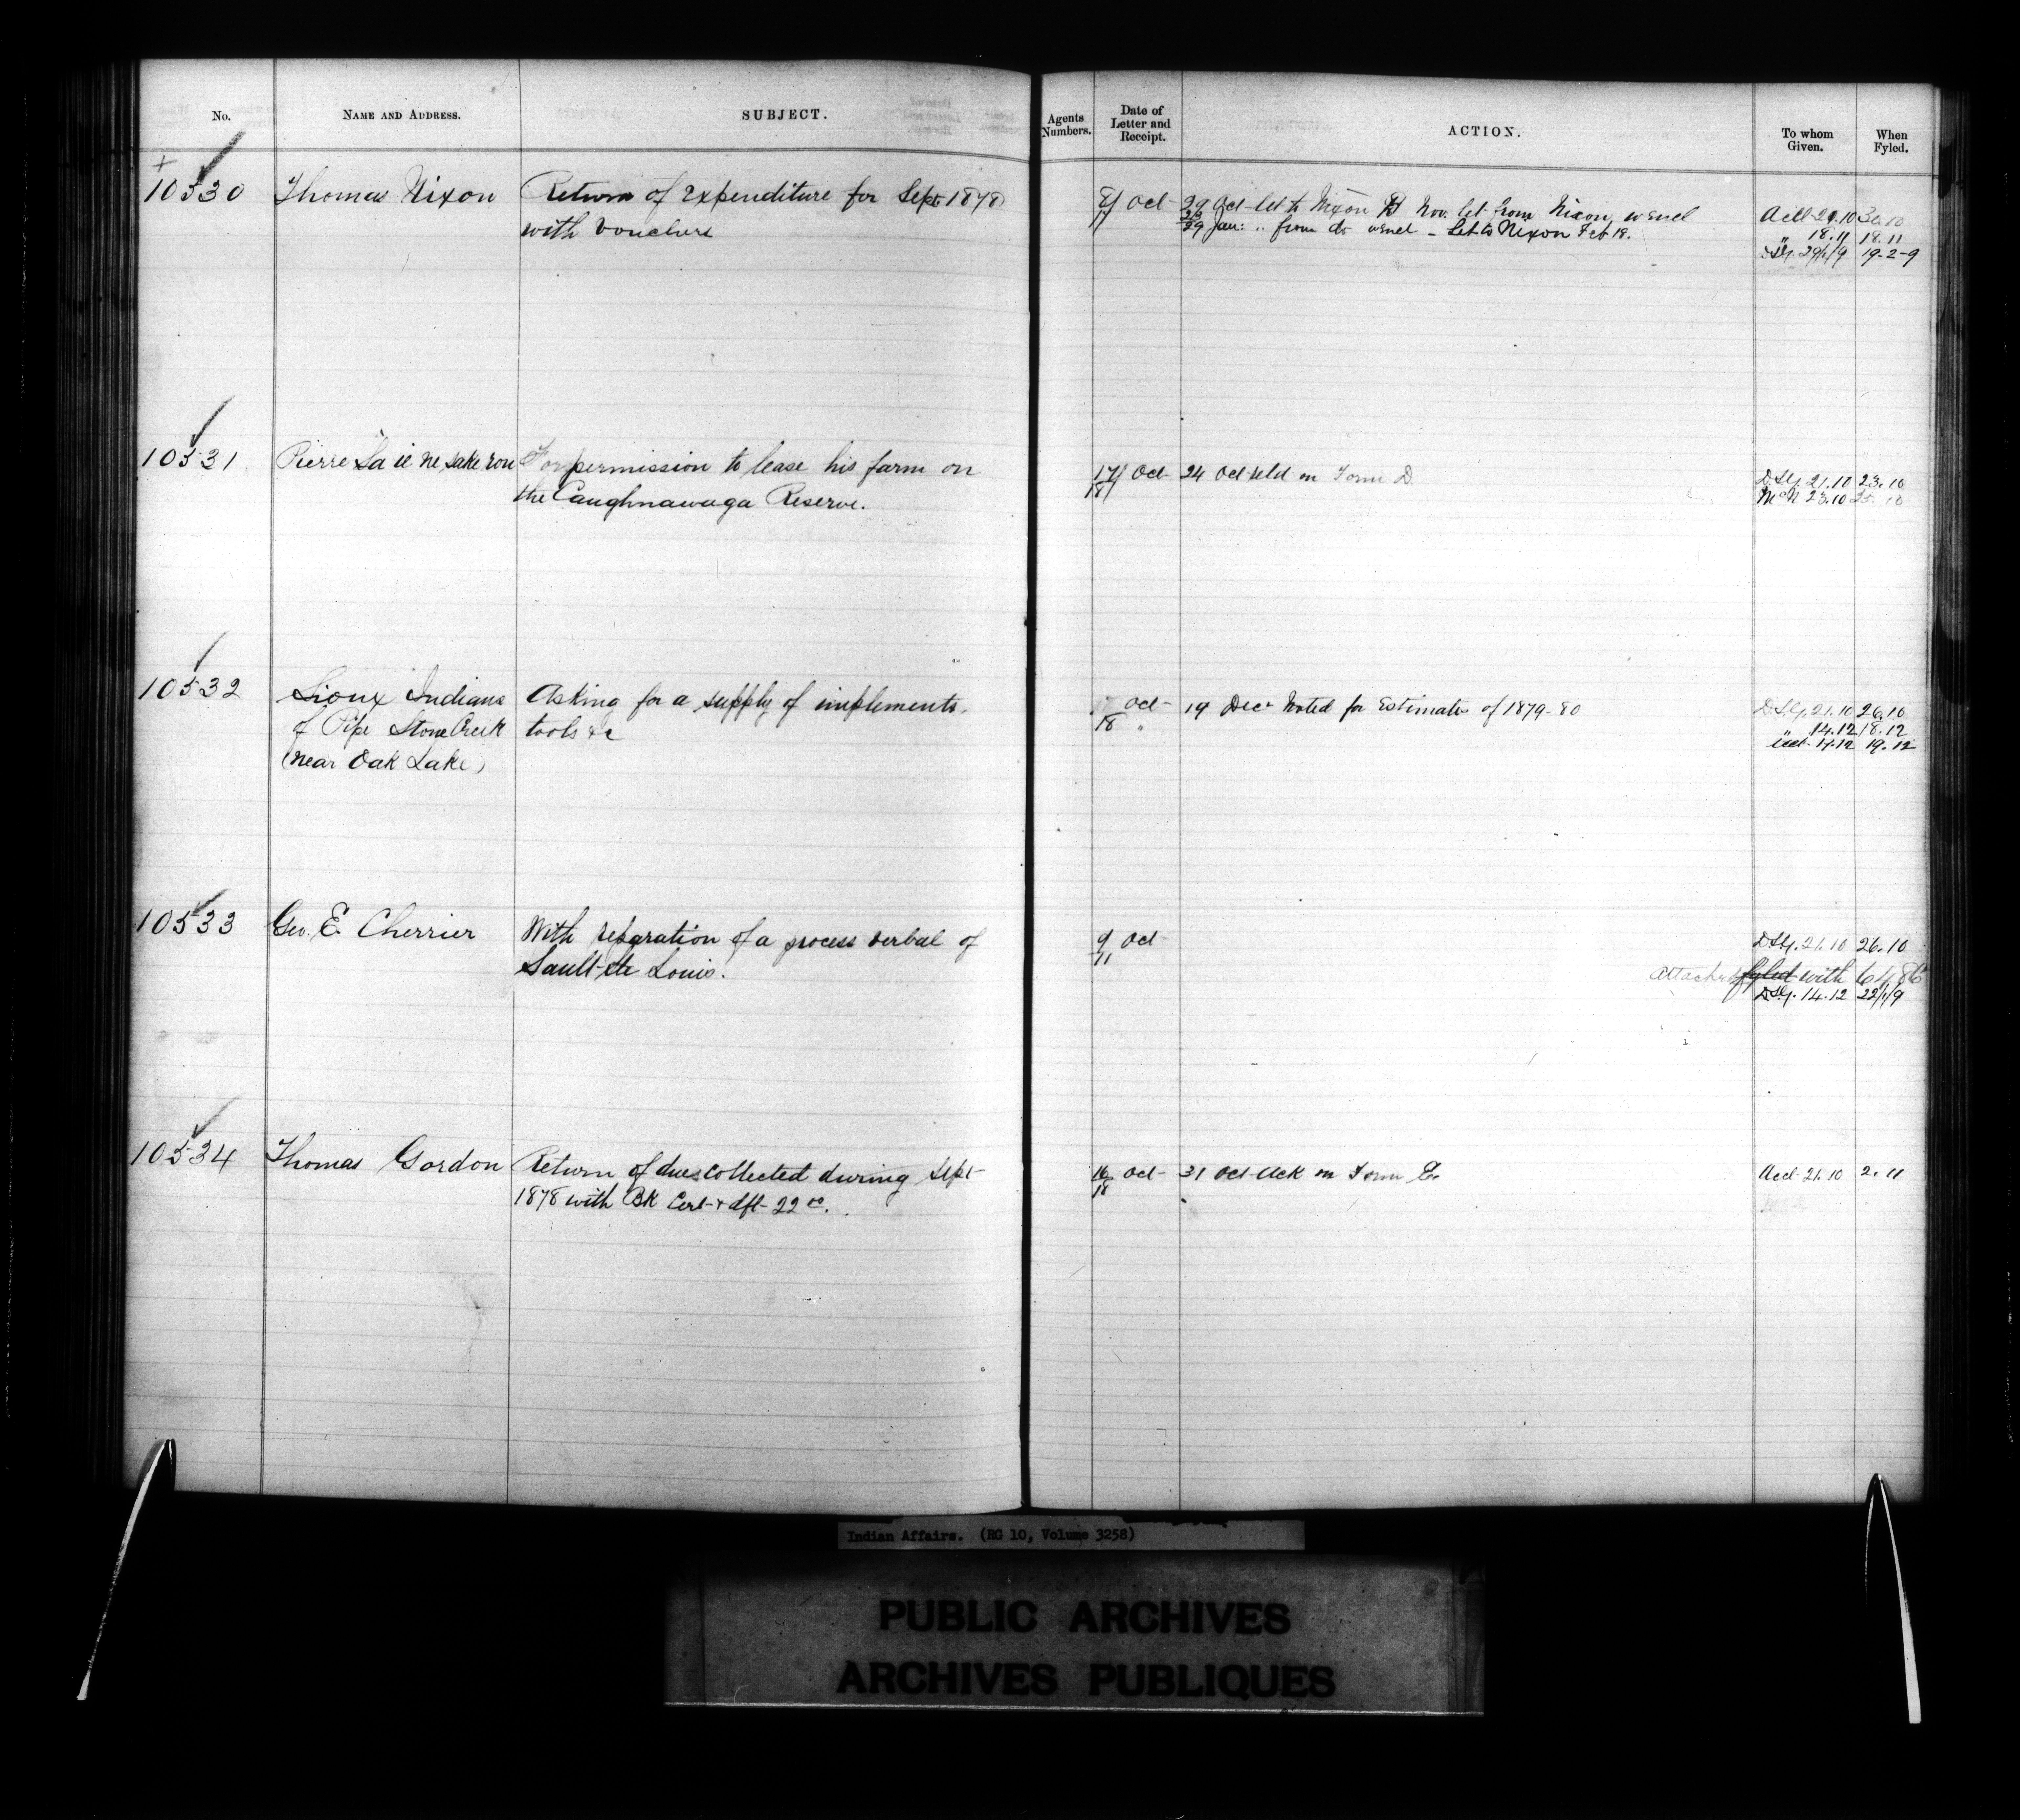 No. NAME AND ADDRESS. SUBJECT. Agents Numbers. Date of Letter and Receipt. ACTION. To whom Given. When Fyled.
10530 Thomas Nixon Return of Expenditure for Sept 1878 Oct 29 Oct let to Nixon Nov. let from Nixon, w encl Acct 21.10 30.10
with vouchers 29 Jan: " from do w encl - Let to Nixon Feb 18. " 18.11 18.11
29/1/9 19-2-9
10531 Pierre For permission to lease his farm on 17 Oct 24 Oct on Form D 21.10 23.10
the Caughnawaga Reserve. 18 McN 23.10 25.10
10532 Sioux Indians Asking for a supply of implements, Oct 19 Dec Noted for Estimates of 1879-80 21.10 26.10
of Pipe Stone Creek tools &c 18 " " 14.12 18.12
(near Oak Lake) 19.12
10533 Geo. E. Cherrier With reparation of a process verbal of 9 Oct 21.10 26.10
Sault-St Louis. 11 Attached fyled with
14.12 22/1/9
10534 Thomas Gordon Return of dues collected during Sept 16 Oct 31 Oct Ack on Form E. Acct 21.10 2.11
1878 with BK Cert + dft 22 00. 18
Indian Affairs. (RG 10, Volume 3258)
PUBLIC ARCHIVES
ARCHIVES PUBLIQUES